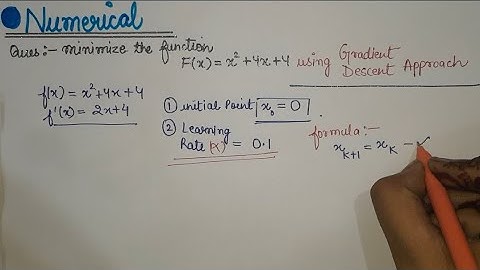 Numerical
Ques:- minimize the function
F(x) = x² + 4x + 4 using Gradient Descent Approach
f(x) = x² + 4x + 4
f'(x) = 2x + 4
① initial Point x₀ = 0
② Learning
Rate (α) = 0.1
formula:-
xₖ₊₁ = xₖ -